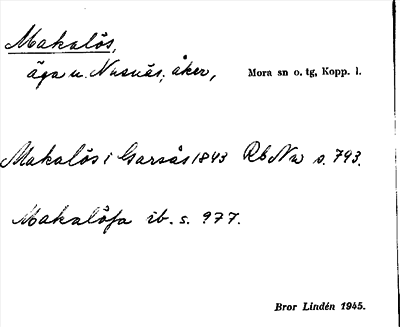 Makalös,
äga u. Nusnäs, åker, Mora sn o. tg, Kopp. l.
Makalös i Garsås 1843 Rb Nu s. 793.
Makalösa ib. s. 977.
Bror Lindén 1945.